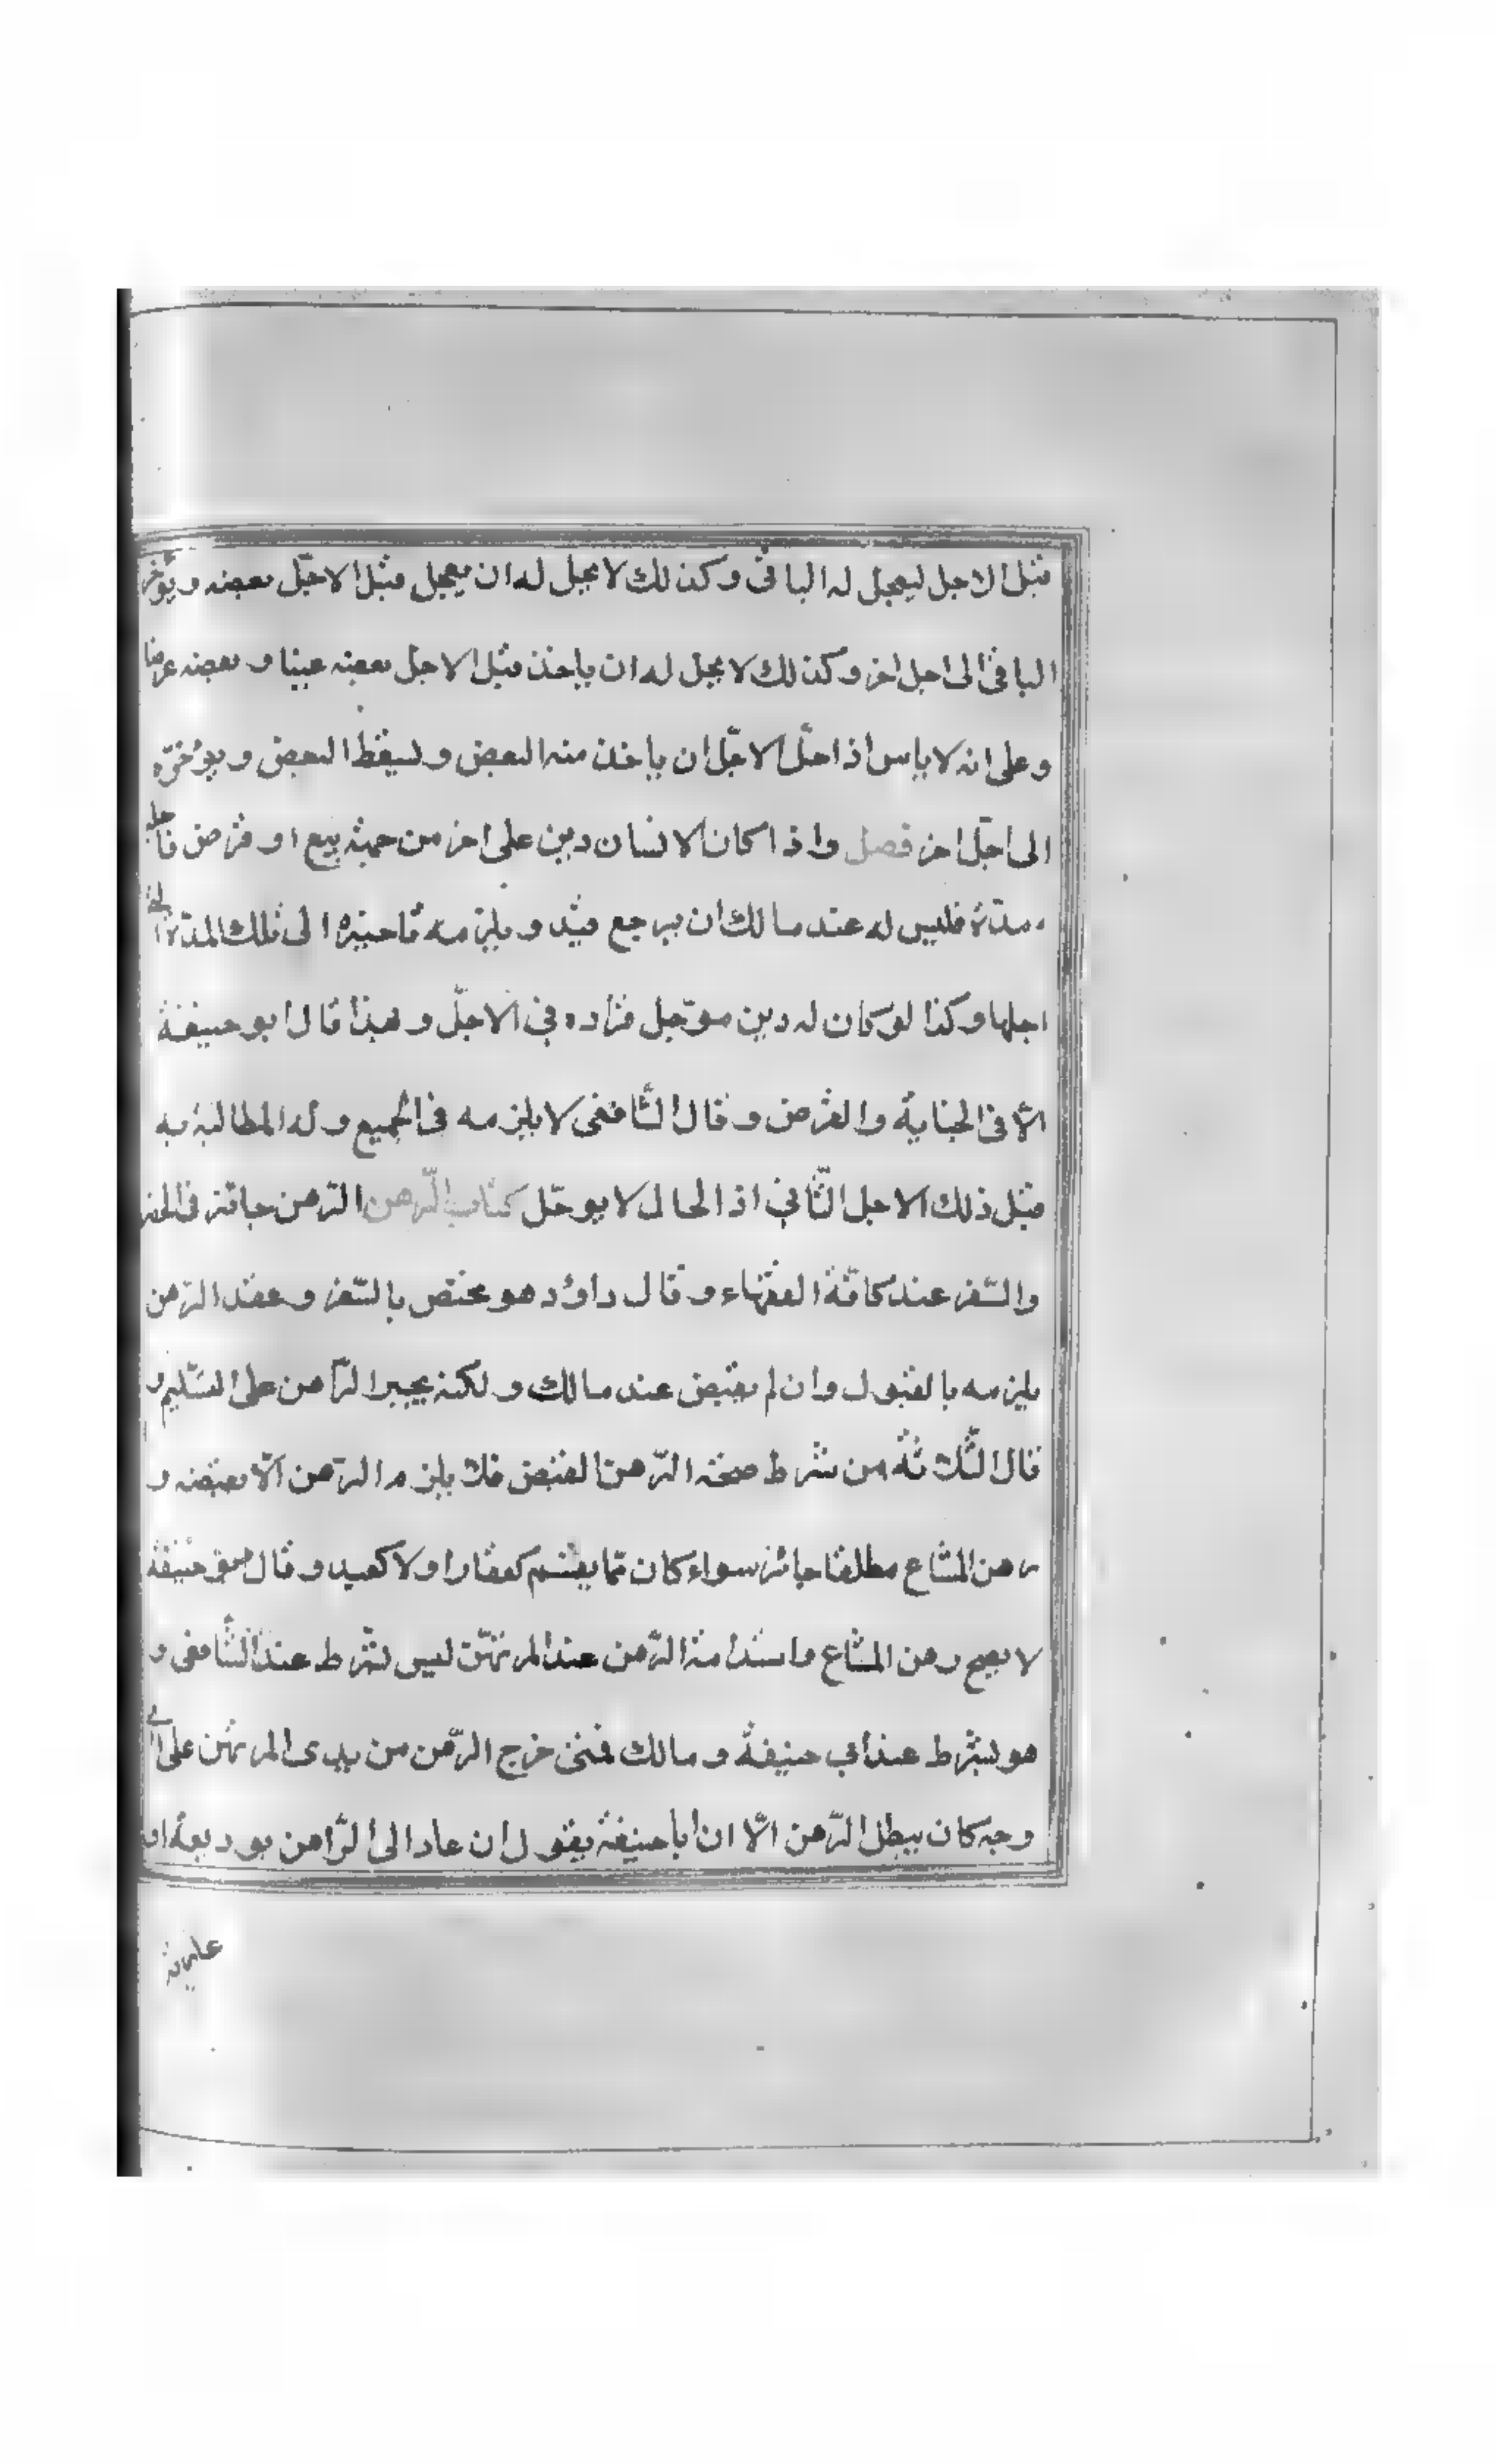 قبل الاجل ليعجل له الباقى وكذلك لا يحل له ان يعجل قبل الاجل بعضه ويؤخر
الباقى الى اجل اخر وكذلك لا يحل له ان ياخذ قبل الاجل بعضه عينا وبعضه عرضا
وعلى انه لا باس اذا حل الاجل ان ياخذ منه البعض ويسقط البعض ويؤخره
الى اجل اخر فصل واذا كان لانسان دين على اخر من جهة بيع او قرض فاجله
مدة فليس له عند مالك ان يرجع فيه ويلزمه تاخيره الى تلك المدة التى
اجلها وكذا لو كان له دين موجل فزاده فى الاجل وبهذا قال ابو حنيفة
الا فى الجناية والقرض وقال الشافعى لا يلزمه فى الجميع وله المطالبة به
قبل ذلك الاجل الثانى اذ الحال لا يوجل كتاب الرهن الرهن جائز فى الحضر
والسّفر عند كافة الفقهاء وقال داؤد هو مختص بالسّفر وعقد الرهن
يلزمه بالقبول وان لم يقبض عند مالك ولكنه يجبر الراهن على التسليم و
قال الثلاثة من شرط صحة الرّهن القبض فلا يلزم الرهن الّا بقبضه و
رهن المشاع مطلقا جائز سواء كان مما يقسم كعقار او لا كعبد وقال ابو حنيفة
لا يصح رهن المشاع واستدامة الرّهن عند المرتهن ليس بشرط عند الشّافعى و
هو بشرط عند ابى حنيفة ومالك فمتى خرج الرّهن من يدى المرتهن على اى
وجه كان يبطل الرّهن الّا ان ابا حنيفة يقول ان عاد الى الرّاهن بوديعة او